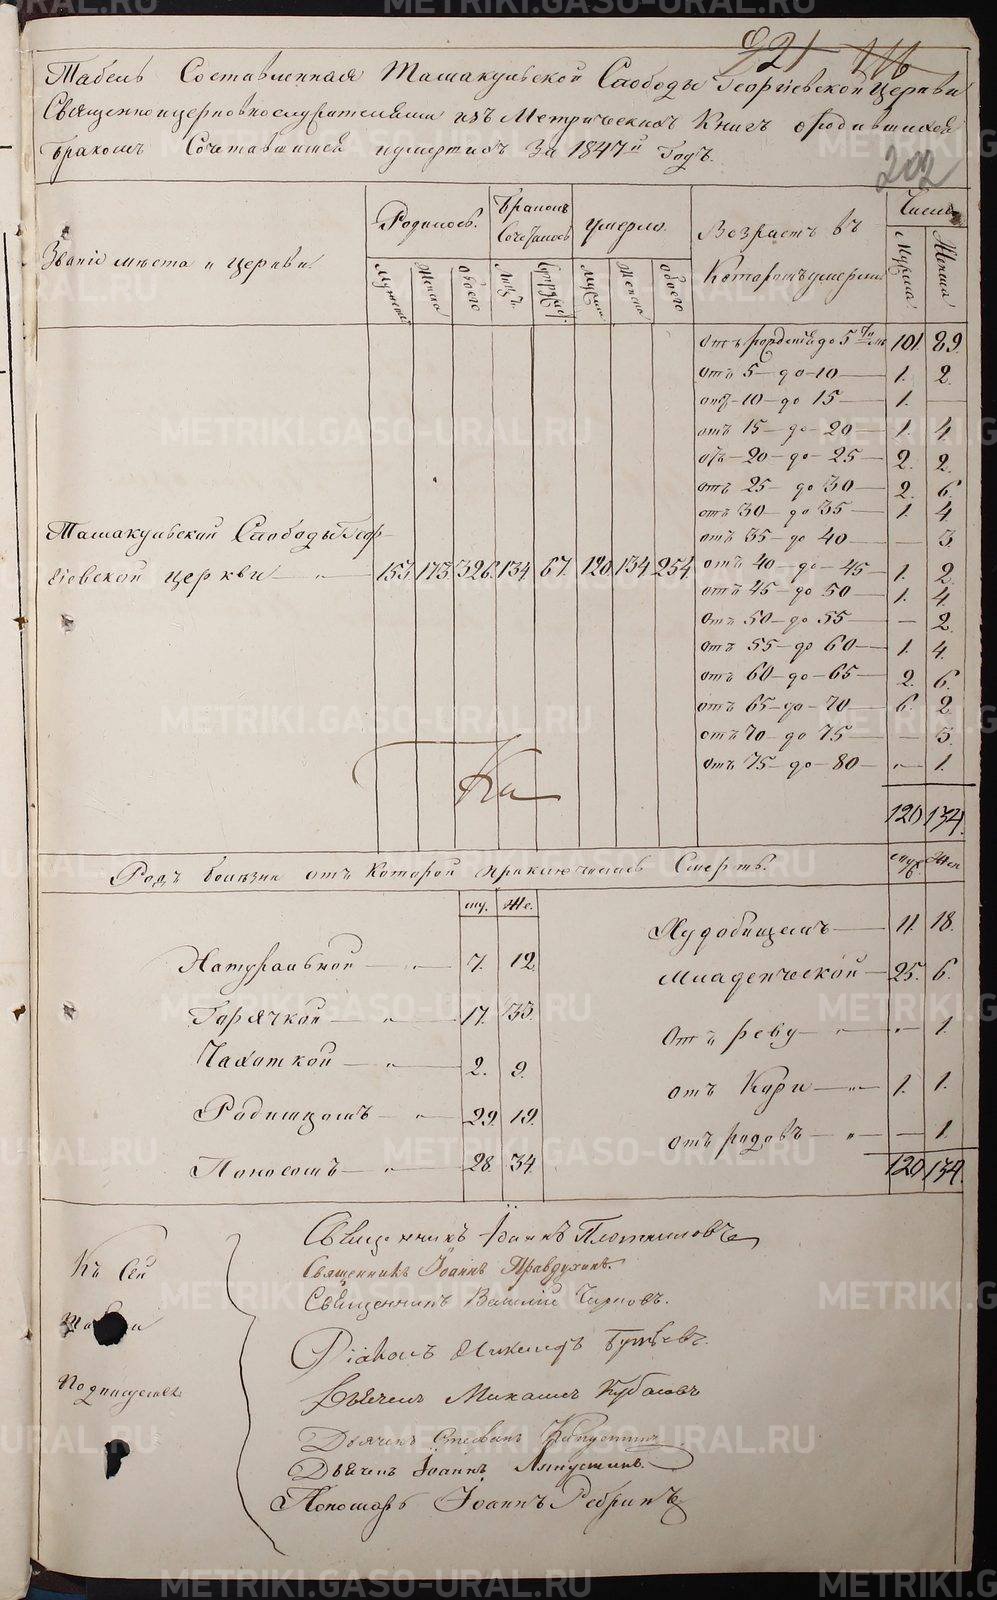 221 116
Табель Составленная Ташакульской Слободы Георгіевской Церкви
Священноицерковнослужителями изъ Метрическихъ Книгъ ородившихся
бракомъ Сочетавшихся иумершихъ За 1847й Годъ.
202
Званіе мѣста и церкви.
Родилось.
Бракомъ Сочеталось
умерло.
Возрастъ въ
Которомъ умерли
Число
Мужеска Женска Обоего Лицъ Супруж. Мужска Женска Обоего Мужска Женска
отъ рожденія до 5ти лѣ 101. 89.
отъ 5 – до – 10 — 1. 2.
отъ – 10 – до 15 — 1. —
отъ 15 – до – 20 — 1. 4.
отъ – 20 – до – 25 — 2. 2.
отъ 25 – до 30 — 2. 6.
отъ 30 – до 35 — 1. 4
отъ 35 – до 40 — — 3
отъ 40 – до – 45 — 1. 2.
отъ 45 – до 50 — 1. 4.
отъ 50 – до 55 — — 2.
отъ 55 – до 60 — 1. 4.
отъ 60 – до – 65 — 2. 6.
отъ 65 – до – 70 — 6. 2
отъ 70 – до 75 — — 3.
отъ 75 – до – 80 — „ 1.
120 134.
Ташакульской Слободы Геор-
гіевской церкви — „ — 153. 173. 326. 134 67. 120. 134 254
Родъ болѣзни отъ Которой приключилась Смерть. муж. Жен
му. Же.
Натуральной — „ — 7. 12.
Горячкой — „ — 17. 35.
Чахоткой — „ — 2. 9.
Родимцомъ — „ 29. 19.
Поносомъ — „ — 28. 34.
Худобищемъ — 11. 18.
Младенческой — 25. 6.
Отъ реву — „ — „ 1.
отъ Кори — „ — 1. 1.
отъ родовъ — „ — — 1.
120 134.
Къ Сей
Подписуемся
Священникъ Іоаннъ Плотниковъ
Священникъ Іоаннъ Правдухинъ.
Священникъ Василій Чирковъ.
Діаконъ
Дьячекъ Михаилъ
Дьячекъ Стефанъ
Дьячекъ Іоаннъ Ляпустинъ.
Пономарь Іоаннъ Ребринъ
METRIKI.GASO-URAL.RU